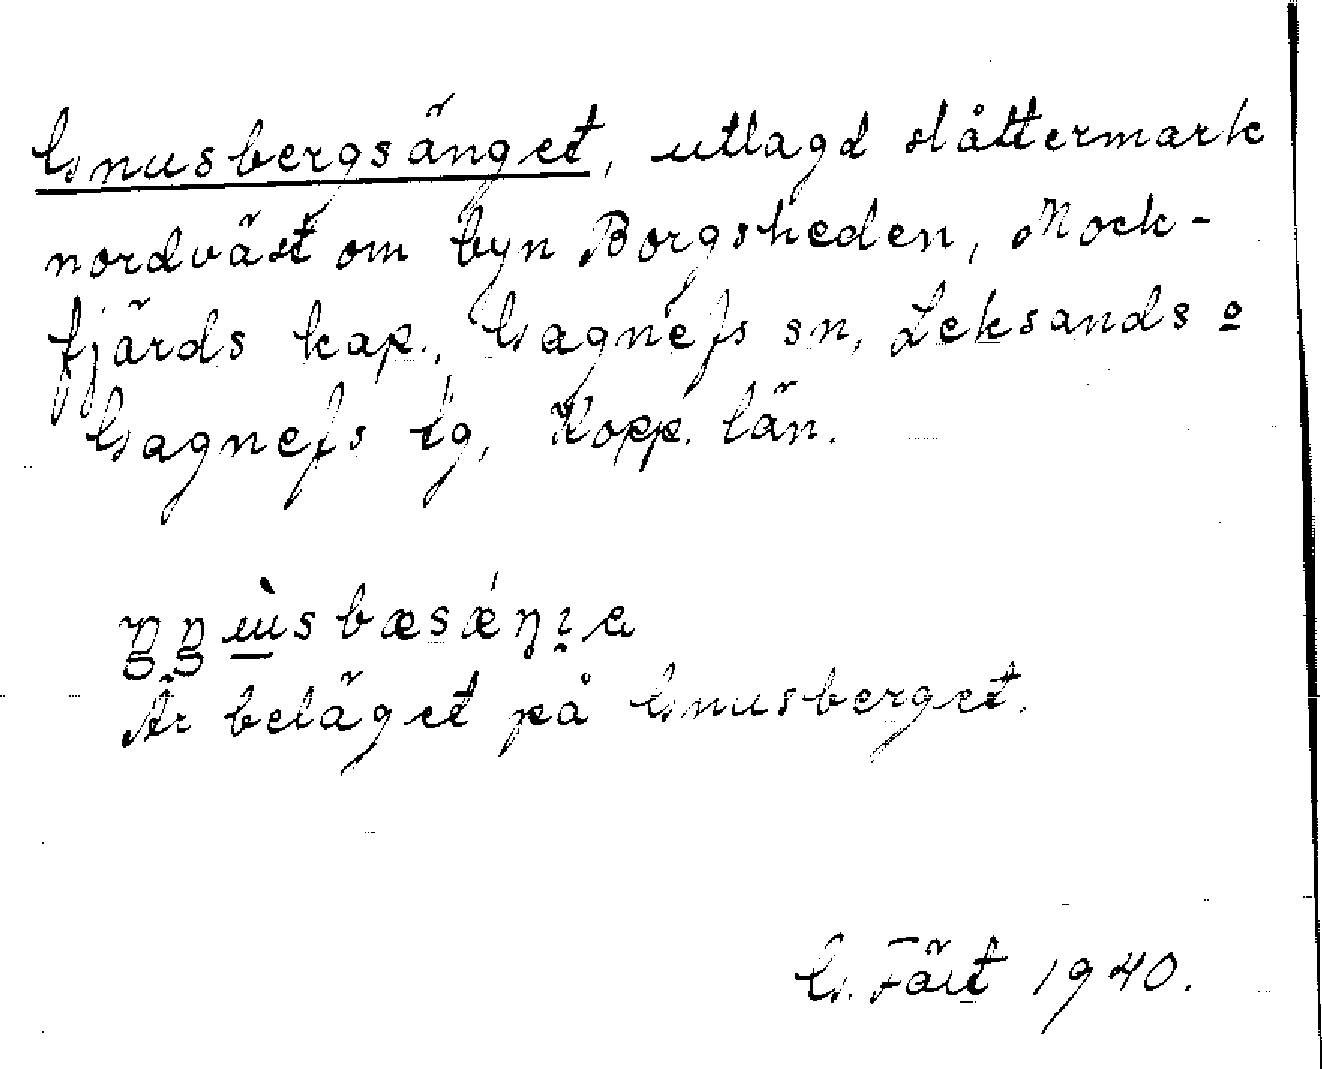 Gnusbergsänget, utlagd slåttermark
nordväst om byn Borgsheden, Mock-
fjärds kap., Gagnefs sn, Leksands o
Gagnefs tg, Kopp. län.
Är beläget på Gnusberget.
G. 1940.